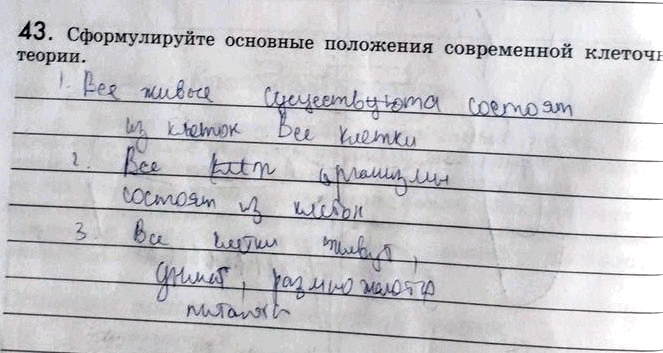 43. Сформулируйте основные положения современной клеточн
теории.
1. Все живые существуюта состоят
из клеток Все клетки
2. Все организмы
состоят из клеток
3. Все клетки живут,
размножаются